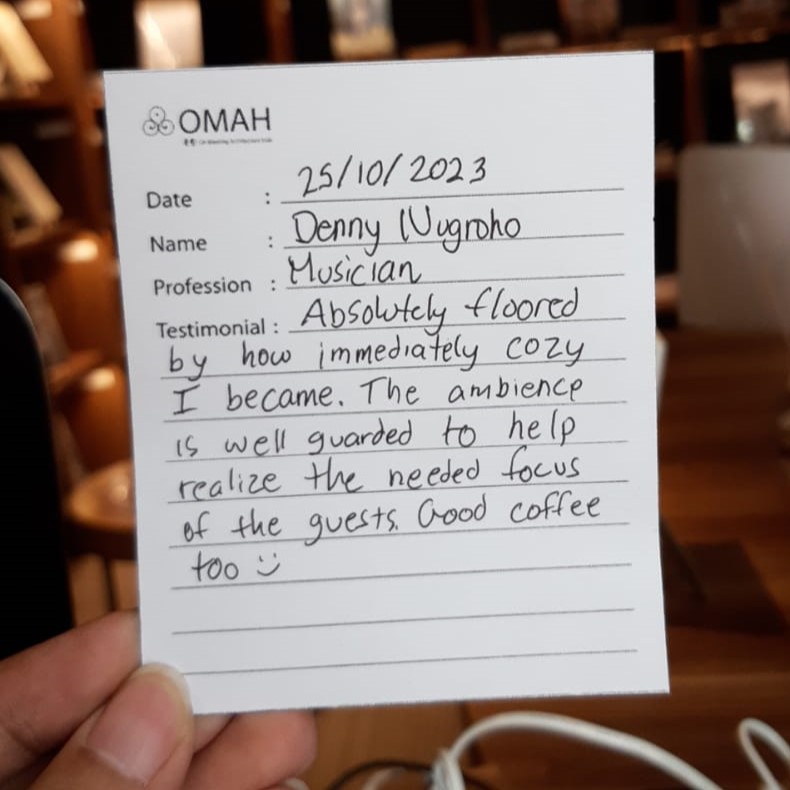 OMAH
Date : 25/10/2023
Name : Denny Nugroho
Profession : Musician
Testimonial : Absolutely floored
by how immediately cozy
I became. The ambience
is well guarded to help
realize the needed focus
of the guests. Good coffee
too :)